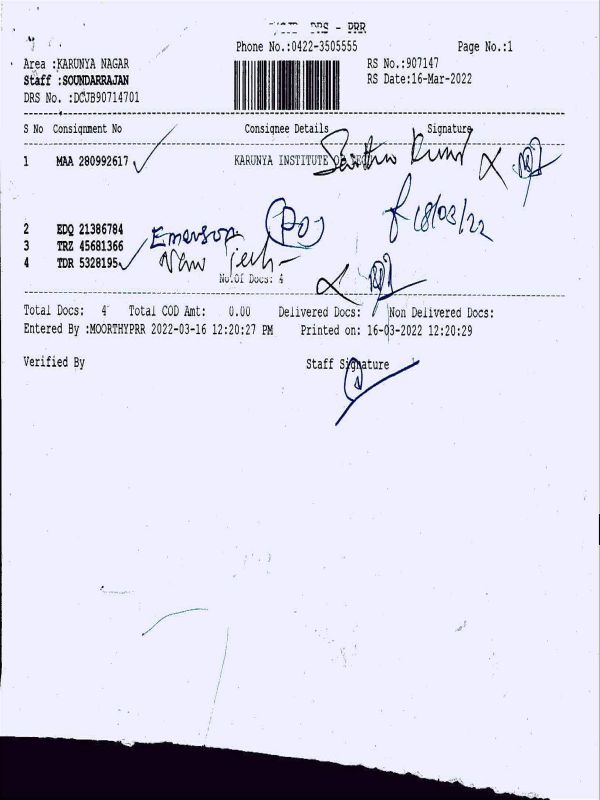 DRS - PRR
Phone No.:0422-3505555 Page No.:1
Area :KARUNYA NAGAR RS No.:907147
Staff :SOUNDARRAJAN RS Date:16-Mar-2022
DRS No. :DCJB90714701
S No Consignment No Consignee Details Signature
1 MAA 280992617 KARUNYA INSTITUTE OF
2 EDQ 21386784 18/03/22
3 TRZ 45681366 Emerson
4 TDR 5328195 New Tech
No.Of Docs: 4
Total Docs: 4 Total COD Amt: 0.00 Delivered Docs: Non Delivered Docs:
Entered By :MOORTHYPRR 2022-03-16 12:20:27 PM Printed on: 16-03-2022 12:20:29
Verified By Staff Signature